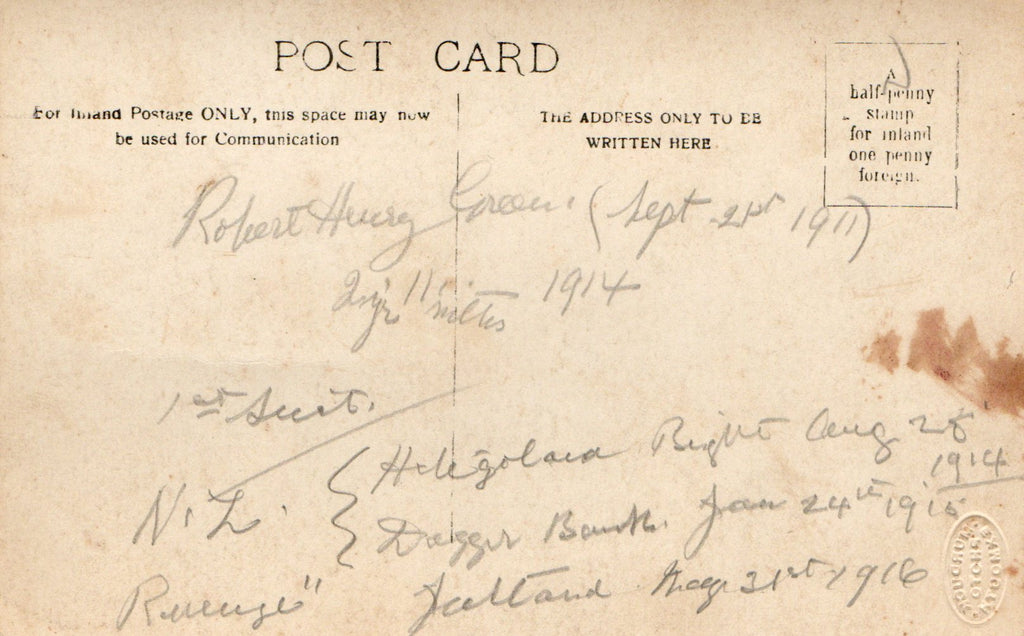 POST CARD
For Inland Postage ONLY, this space may now
be used for Communication
THE ADDRESS ONLY TO BE
WRITTEN HERE
A
half-penny
stamp
for inland
one penny
foreign.
Robert Henry Green. (Sept 21st 1911)
2 yrs 11 mths 1914
1st Suit.
N. Z. { Heligoland Bight Aug 28 1914
Dogger Bank. Jan 24th 1915
Revenge" Jutland May 31st 1916